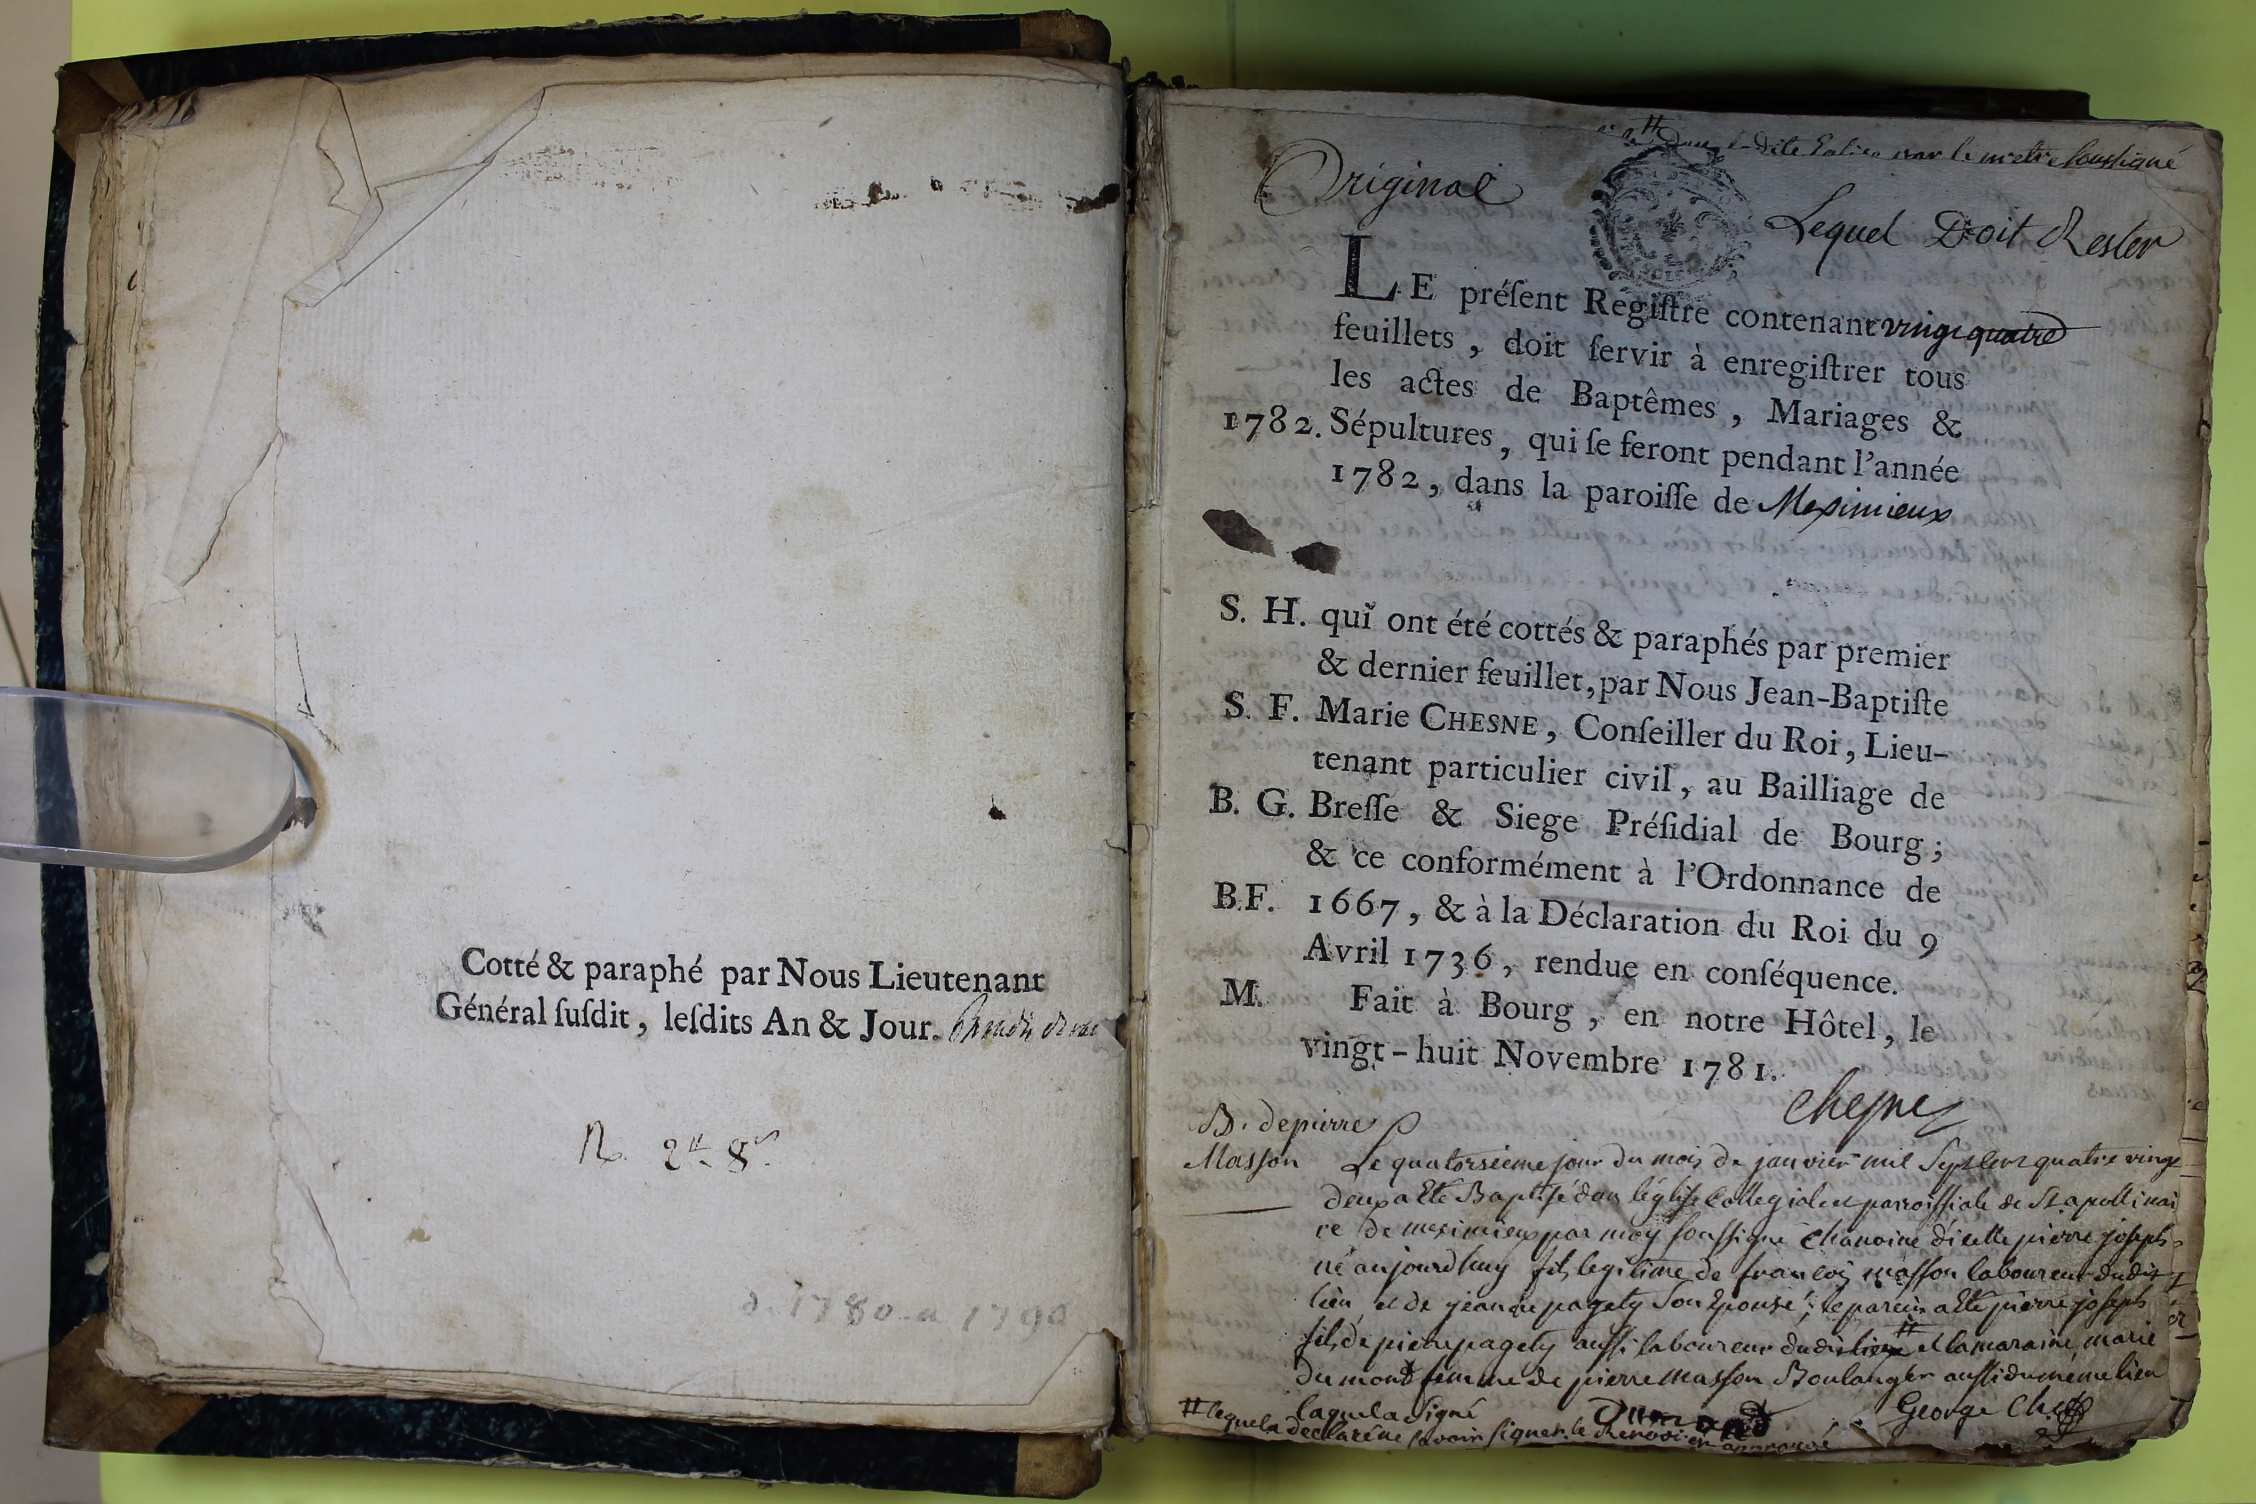 Cotté & paraphé par Nous Lieutenant
Général ſuſdit, leſdits An & Jour.
N. 2# 8s
d. 1780 a 1790
dite Eglise par le pretre soussigné
Original
Lequel Doit Rester
LE préſent Regiſtre contenant vingt quatre
feuillets, doit ſervir à enregiſtrer tous
les actes de Baptêmes, Mariages &
1782. Sépultures, qui ſe feront pendant l'année
1782, dans la paroiſſe de Meximieux
S. H. qui ont été cottés & paraphés par premier
& dernier feuillet, par Nous Jean-Baptiſte
S. F. Marie CHESNE, Conſeiller du Roi, Lieu-
tenant particulier civil, au Bailliage de
B. G. Breſſe & Siege Préſidial de Bourg;
& ce conformément à l'Ordonnance de
B.F. 1667, & à la Déclaration du Roi du 9
Avril 1736, rendue en conſéquence.
M. Fait à Bourg, en notre Hôtel, le
vingt-huit Novembre 1781.
Chesne
B. de pierre
Masson Le quatorsieme jour du mois de janvier mil sept cent quatre vingt
deux a Eté Baptisé dans léglise Collegiale et parroissiale de St. apollinai
re de meximieux par moy soussigné Chanoine d'icelle pierre joseph
né aujourdhuy fils legitime de françois masson laboureur dudit
lieu et de jeanne pagety son Epouse; le parein a Eté pierre joseph
fils de pierre pagety aussi laboureur dudit lieu # et la maraine marie
dumond femme de pierre masson Boulanger aussi du meme lieu
laquelle a signé Dumond George Ch
# lequel a declaré ne savoir signer. le renvoi approuvé